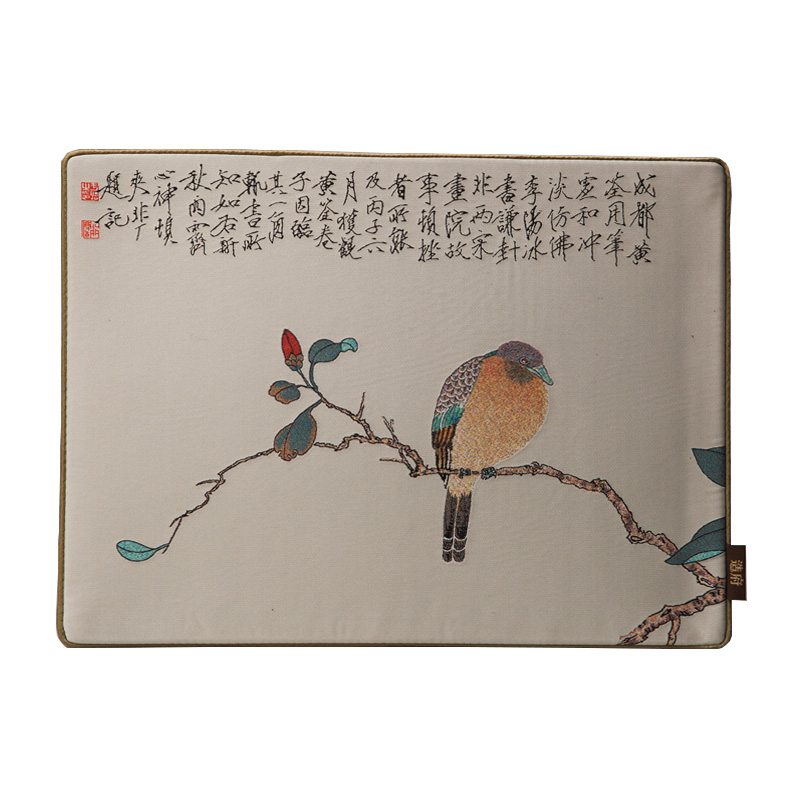 成都黄
筌用筆
虚和冲
淡仿佛
李陽冰
書謙卦
非兩宋
畫院故
事頓挫
者所能
及丙子六
月獲觀
黄筌卷
子因臨
其一角
執書所
知如右時
秋雨霽
心神
爽非厂
題記
造府